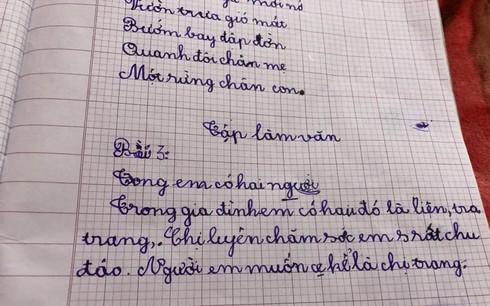 mới nở
Vườn trưa gió mát
Bướm bay dập dờn
Quanh đôi chân mẹ
Một rừng chân con.
Tập làm văn
Bài 3:
Trong em có hai người
Trong gia đình em có hau đó là liên, tra
trang,. Chi luyên chăm sóc em rất chu
đáo. Người em muốn kể là chị trang.